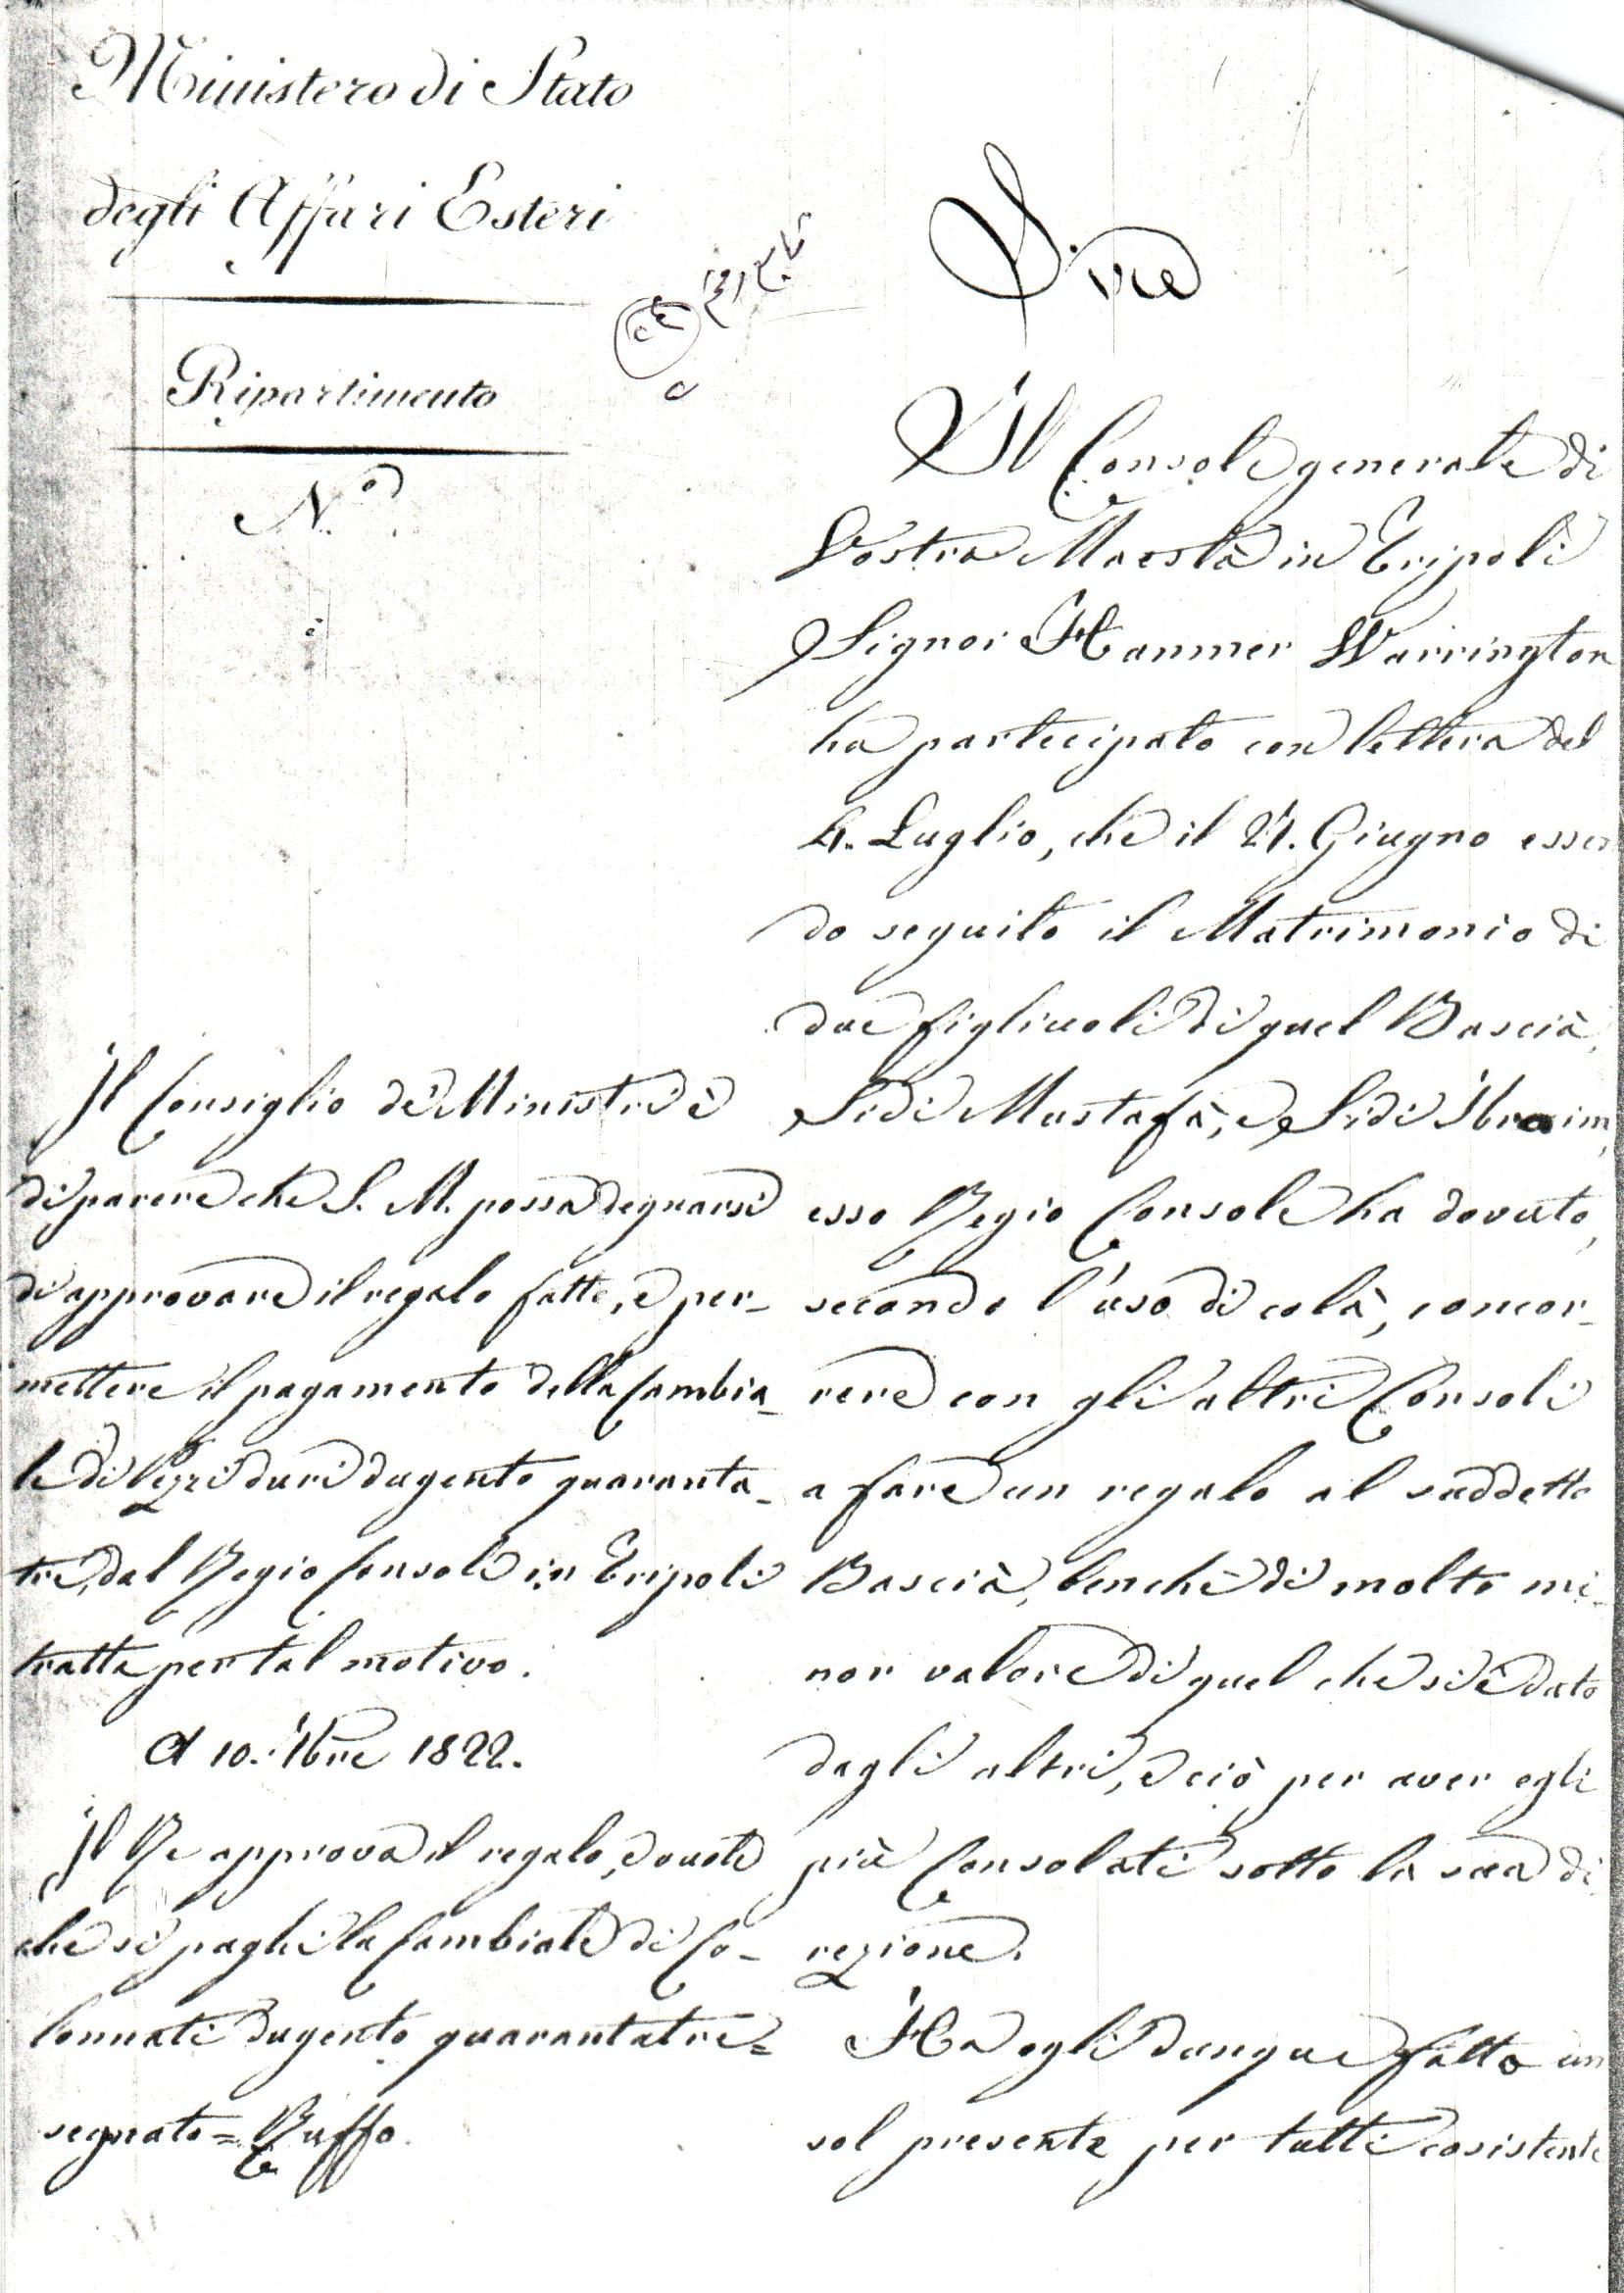 Ministero di Stato
degli Affari Esteri
Ripartimento
N.o
Sire
Il Console generale di
Vostra Maestà in Tripoli
Signor Hanmer Warrington
ha partecipato con lettera del
4. Luglio, che il 24. Giugno essen
do seguito il Matrimonio di
due figliuoli di quel Bascià,
Sidi Mustafà, e Sidi Ibraim,
esso Regio Console ha dovuto,
secondo l'uso di colà, concor-
rere con gli altri Consoli
a fare un regalo al suddetto
Bascià, benchè di molto mi-
nor valore di quel che si è dato
dagli altri, e ciò per aver egli
più Consolati sotto la sua di-
rezione.
Ha egli dunque fatto un
sol presente per tutti cosistente
Il Consiglio de' Ministri è
di parere che S. M. possa degnarsi
di approvare il regalo fatto, e per-
mettere il pagamento della Cambia-
le di Pezzi duri dugento quaranta-
tre, dal Regio Console in Tripoli
tratta per tal motivo.
A 10. 1bre 1822.
Il Re approva il regalo, e vuole
che si paghi la Cambiale di Co-
lonnati dugento quarantatre =
segnato = Ruffo.